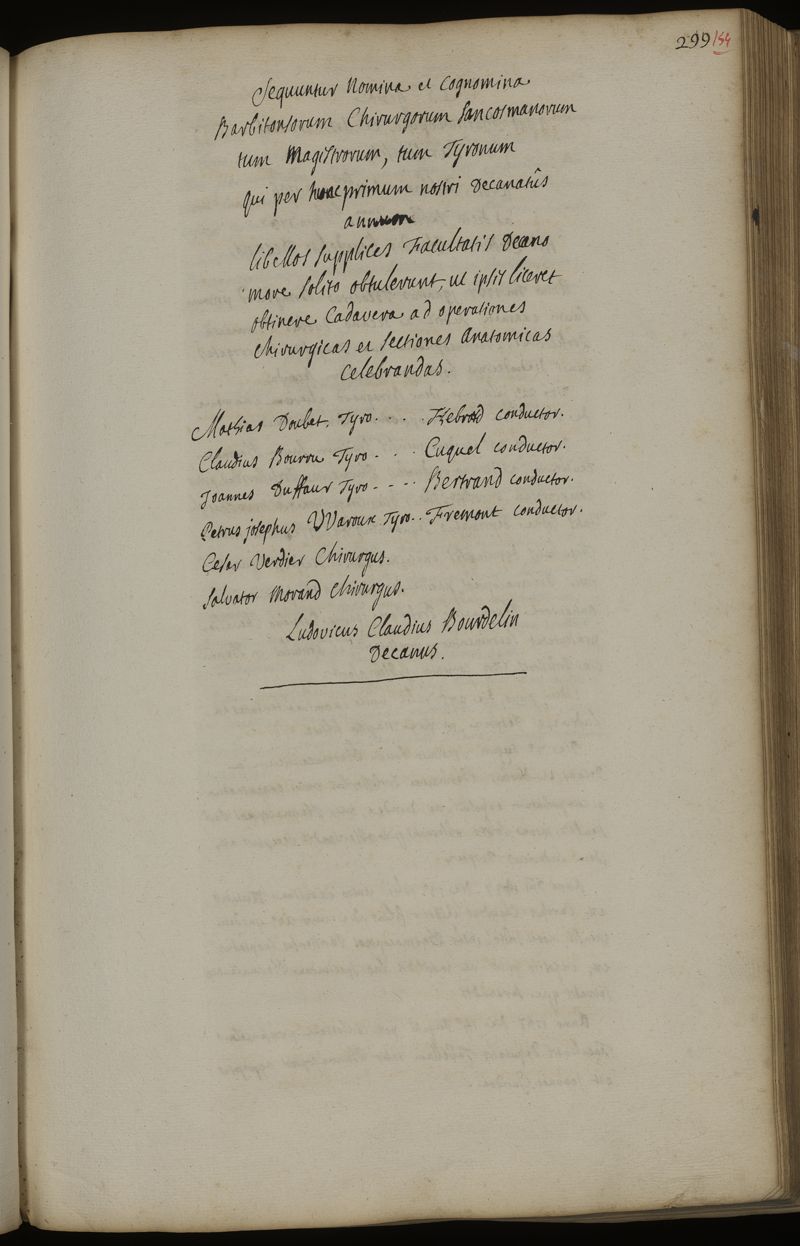 299 154
Sequuntur Nomina et Cognomina
Barbitonsorum Chirurgorum Sancosmanorum
tum Magistrorum, tum Tyronum
qui per hunc primum nostri Decanatûs
annum
libellos supplices Facultatis Decano
more solito obtulerunt, ut ipsis liceret
obtinere Cadavera ad operationes
chirurgicas et sectiones Anatomicas
celebrandas.
Mathias Doubet, Tyro . . . . conductor.
Claudius Bourru Tyro . . . Cuquel conductor.
Joannes Duffaur Tyro . . . . Bertrand conductor.
Petrus josephus VVaroux Tyro . . Fremont conductor.
Cesar Verdier Chirurgus.
Salvator Morand Chirurgus.
Ludovicus Claudius Bourdelin
Decanus.